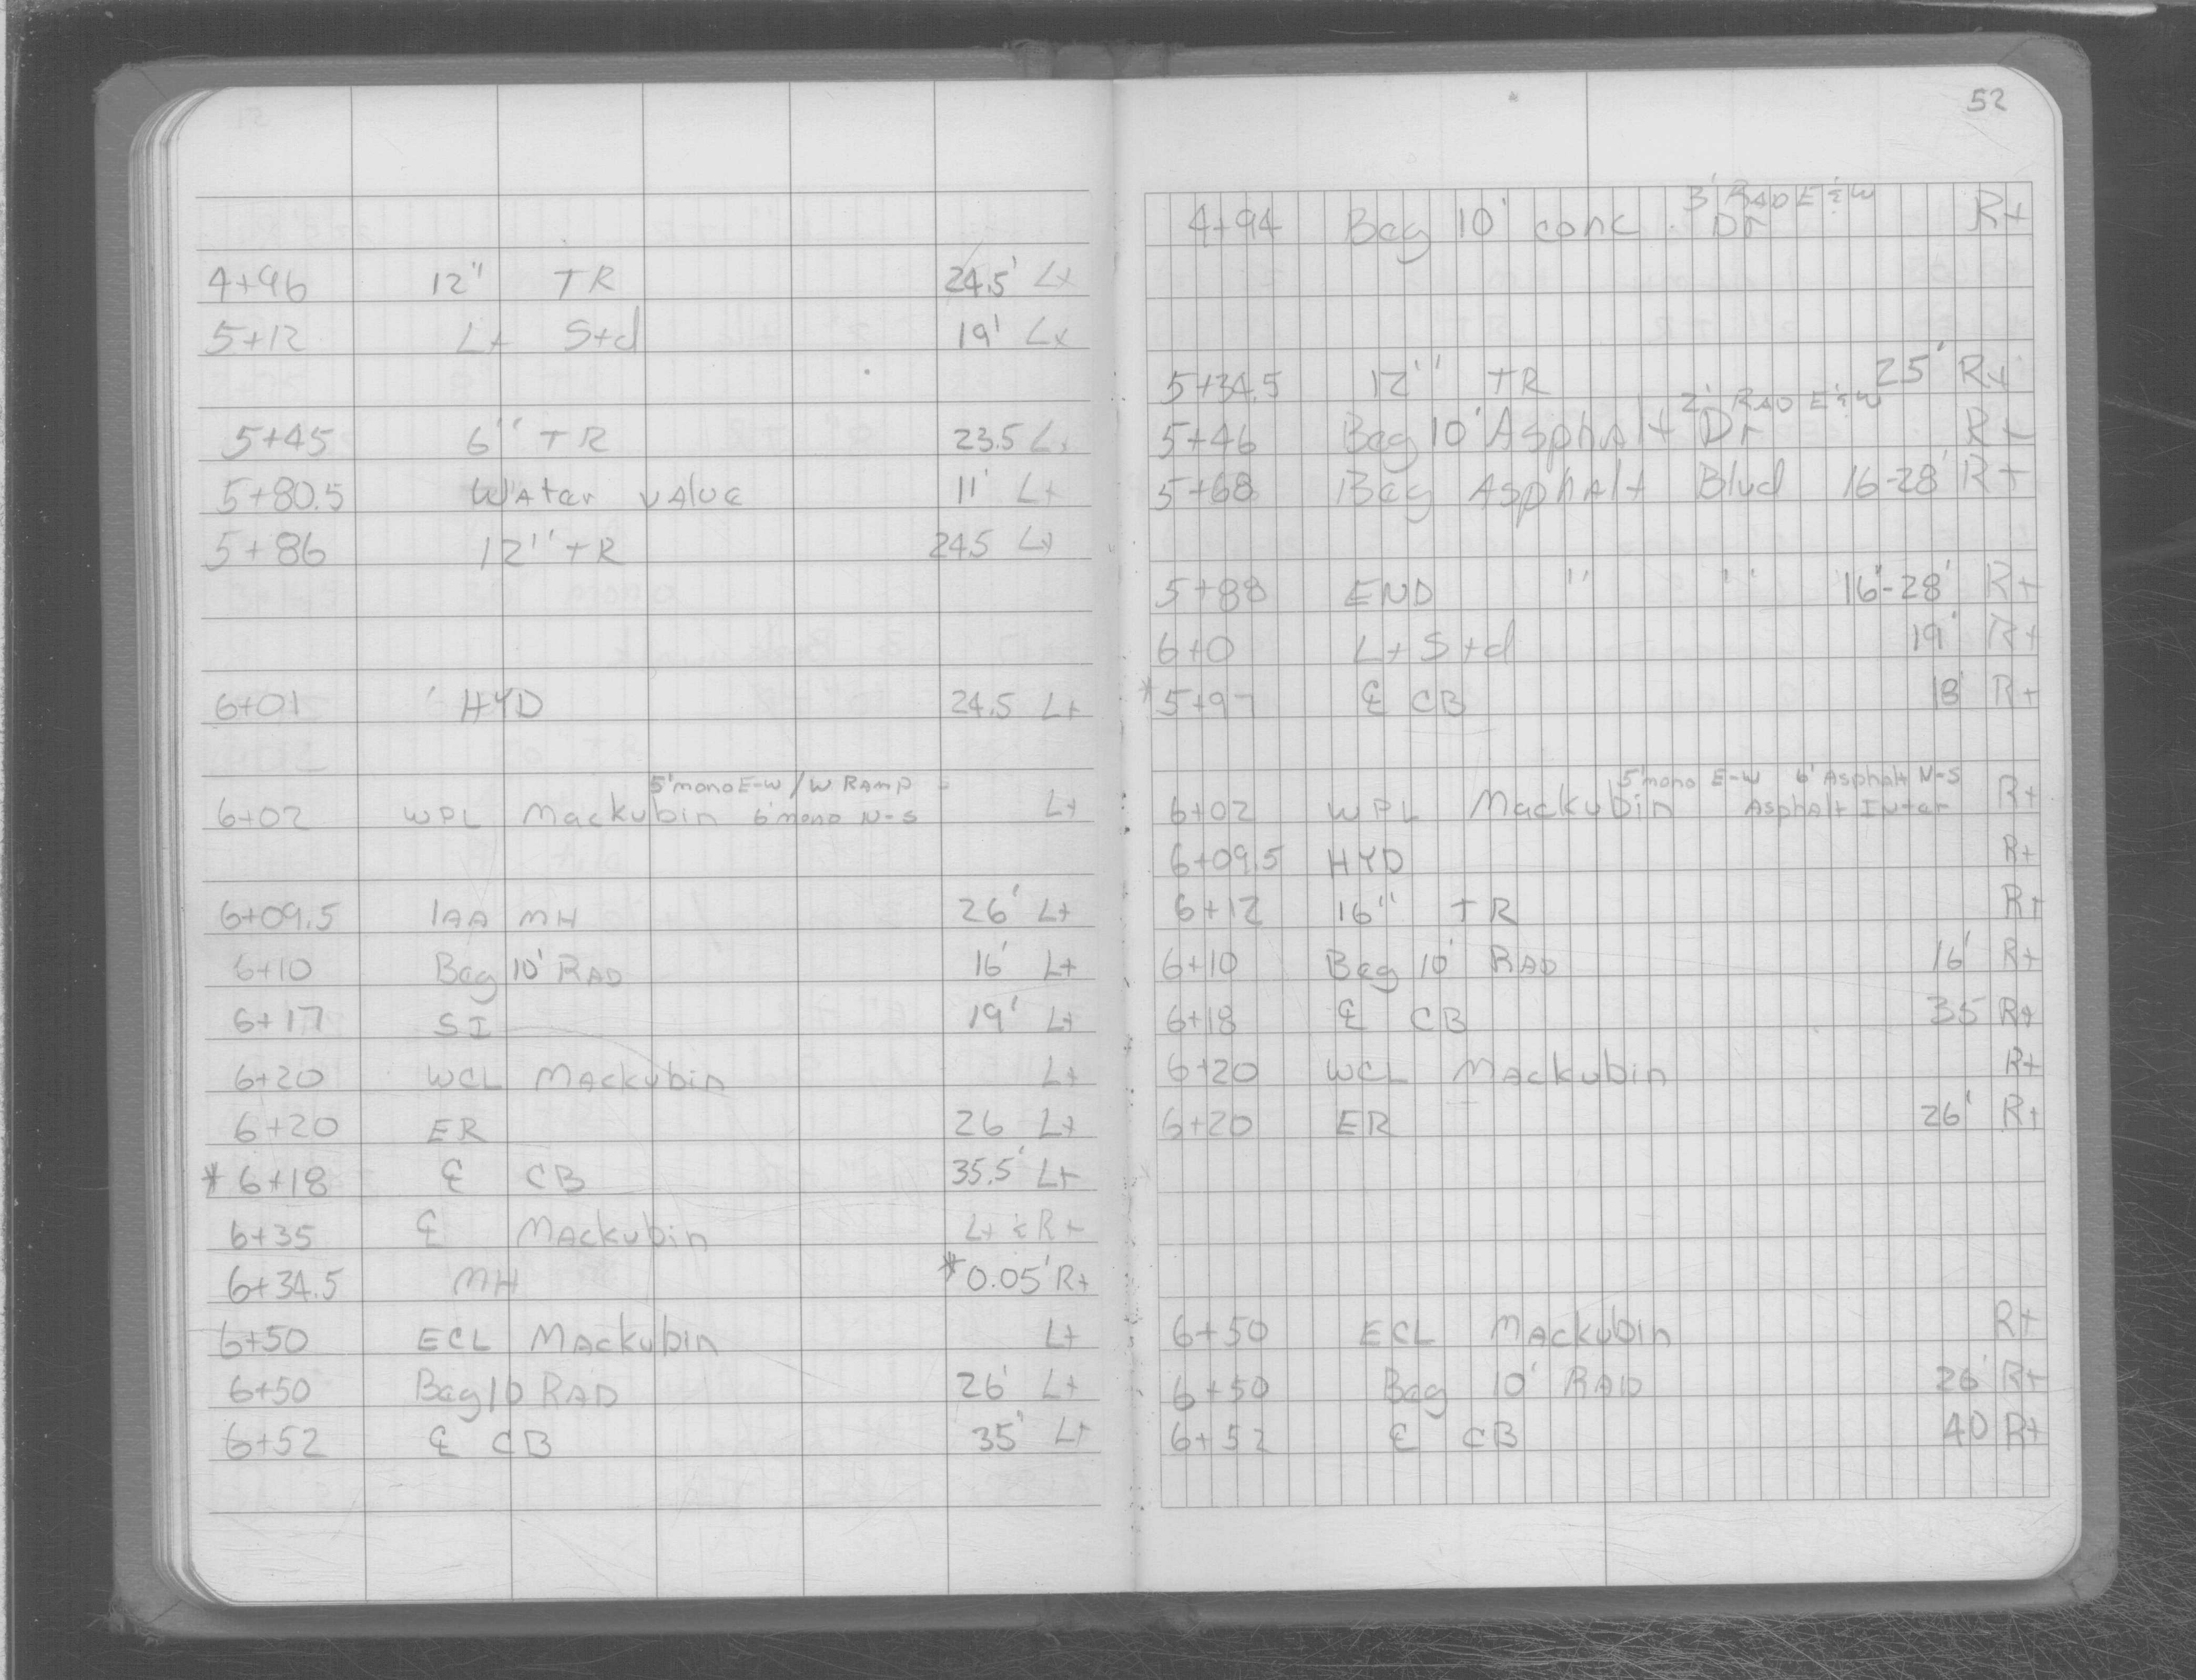 4+96 12" TR 24.5' Lt
5+12 Lt Std 19' Lt
5+45 6" TR 23.5 Lt
5+80.5 Water value 11' Lt
5+86 12" TR 24.5 Lt
6+01 HYD 24.5 Lt
5' mono E-W / W Ramp
6+02 WPL Mackubin 6' mono N-S Lt
6+09.5 1AA MH 26' Lt
6+10 Beg 10' RAD 16' Lt
6+17 SI 19' Lt
6+20 WCL Mackubin Lt
6+20 ER 26 Lt
* 6+18 ℄ CB 35.5' Lt
6+35 ℄ Mackubin Lt & Rt
6+34.5 MH *0.05' Rt
6+50 ECL Mackubin Lt
6+50 Beg 10 RAD 26' Lt
6+52 ℄ CB 35' Lt
52
3' RAD E & W
4+94 Beg 10' conc. Dr Rt
5+34.5 12" TR 25' Rt
2' RAD E & W
5+46 Beg 10' Asphalt Dr Rt
5+68 Beg Asphalt Blvd 16-28' Rt
5+88 END " " 16'-28' Rt
6+0 Lt Std 19' Rt
* 5+97 ℄ CB 18' Rt
5' mono E-W 6' Asphalt N-S
6+02 WPL Mackubin Asphalt Inter Rt
6+09.5 HYD Rt
6+12 16" TR Rt
6+10 Beg 10' RAD 16' Rt
6+18 ℄ CB 35 Rt
6+20 WCL Mackubin Rt
6+20 ER 26' Rt
6+50 ECL Mackubin Rt
6+50 Beg 10' RAD 26' Rt
6+52 ℄ CB 40 Rt